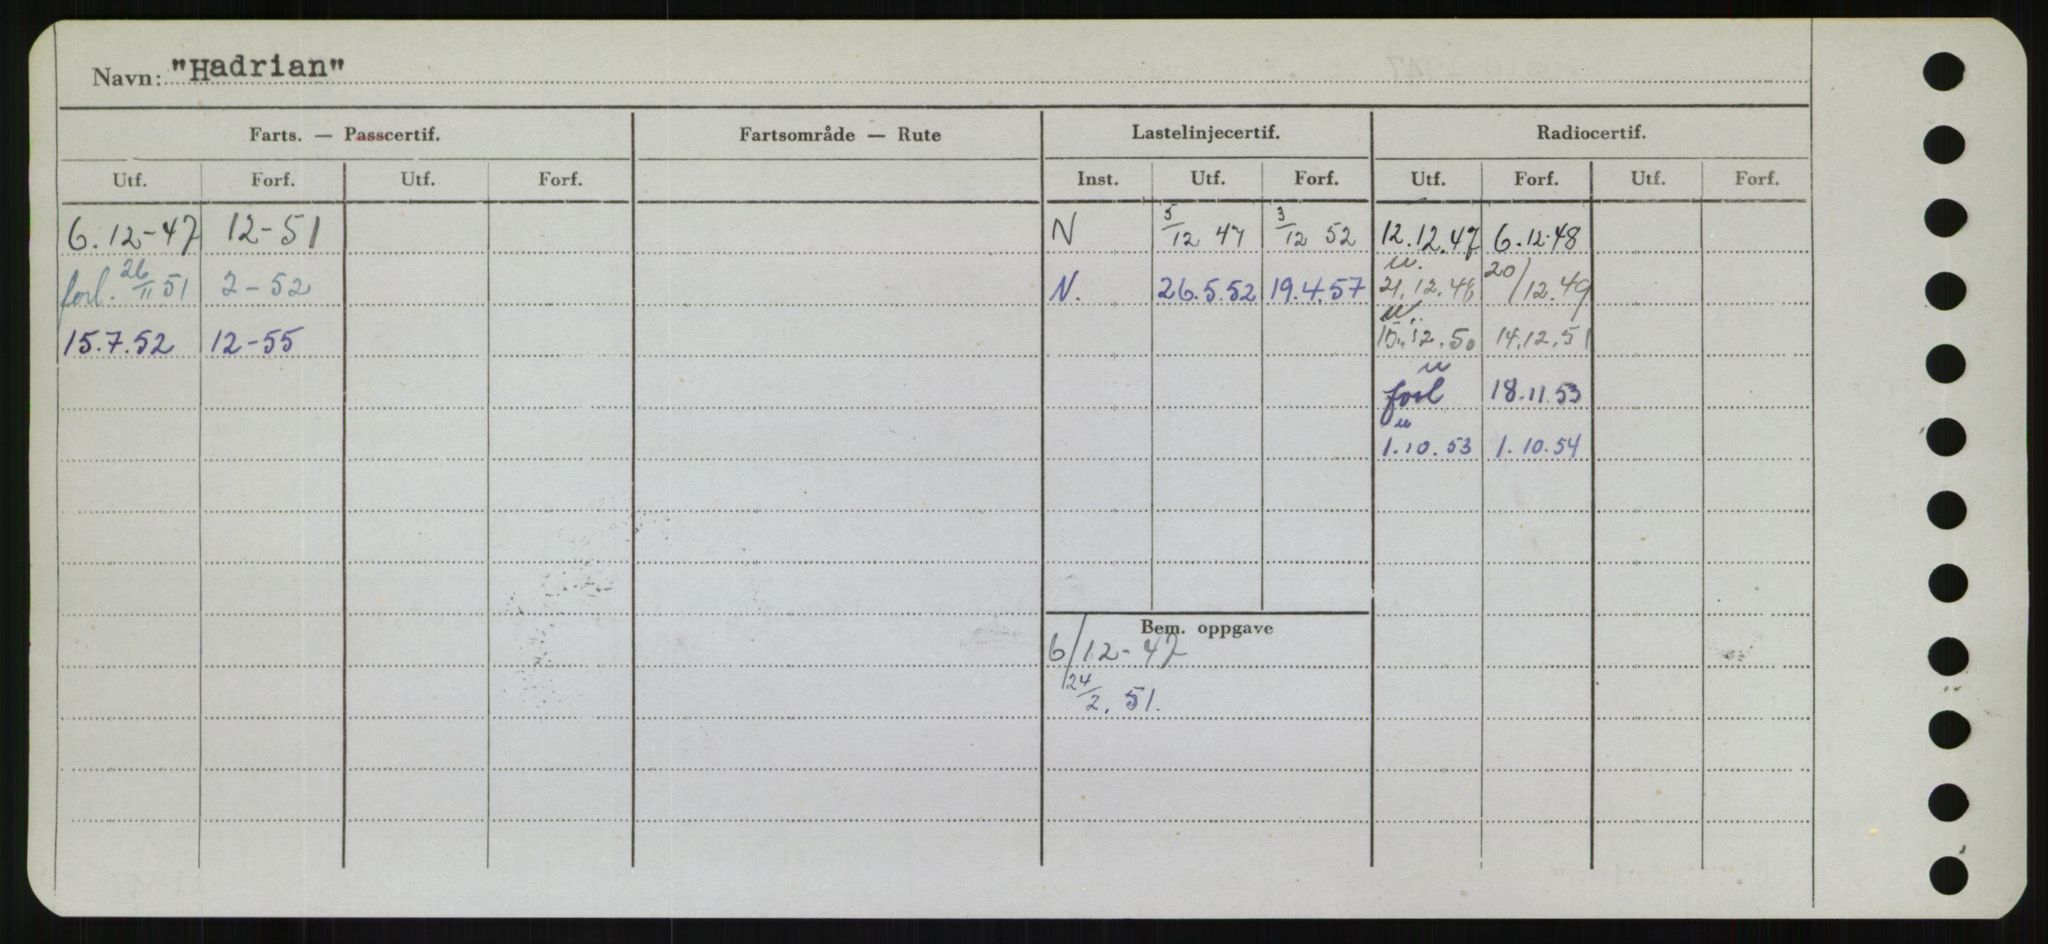 Navn: "Hadrian"
Farts. — Passcertif. Fartsområde — Rute Lastelinjecertif. Radiocertif.
Utf. Forf. Utf. Forf. Inst. Utf. Forf. Utf. Forf. Utf. Forf.
6.12-47 12-51 N 5/12 47 3/12 52 12.12.47 6.12.48
forl. 26/11 51 2-52 N. 26.5.52 19.4.57 u. 21.12.48 20/12.49
15.7.52 12-55 u. 15.12.50 14.12.51
u forl 18.11.53
u 1.10.53 1.10.54
Bem. oppgave
6/12-47
24/2. 51.